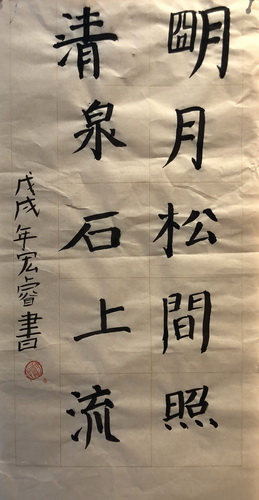 明月松間照
清泉石上流
戊戌年宏睿書